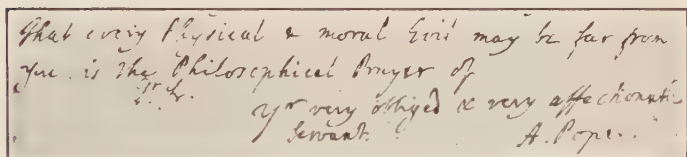 that every Physical & moral Evil may be far from
you is the Philosophical Prayer of
yr very obliged & very affectionate
Servant.
A. Pope.